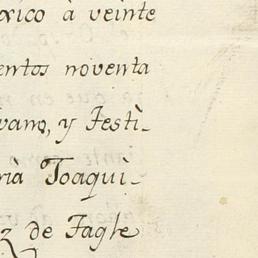 xico à veinte
entos noventa
vano, y Testi-
rià Joaquì-
z de Tagle